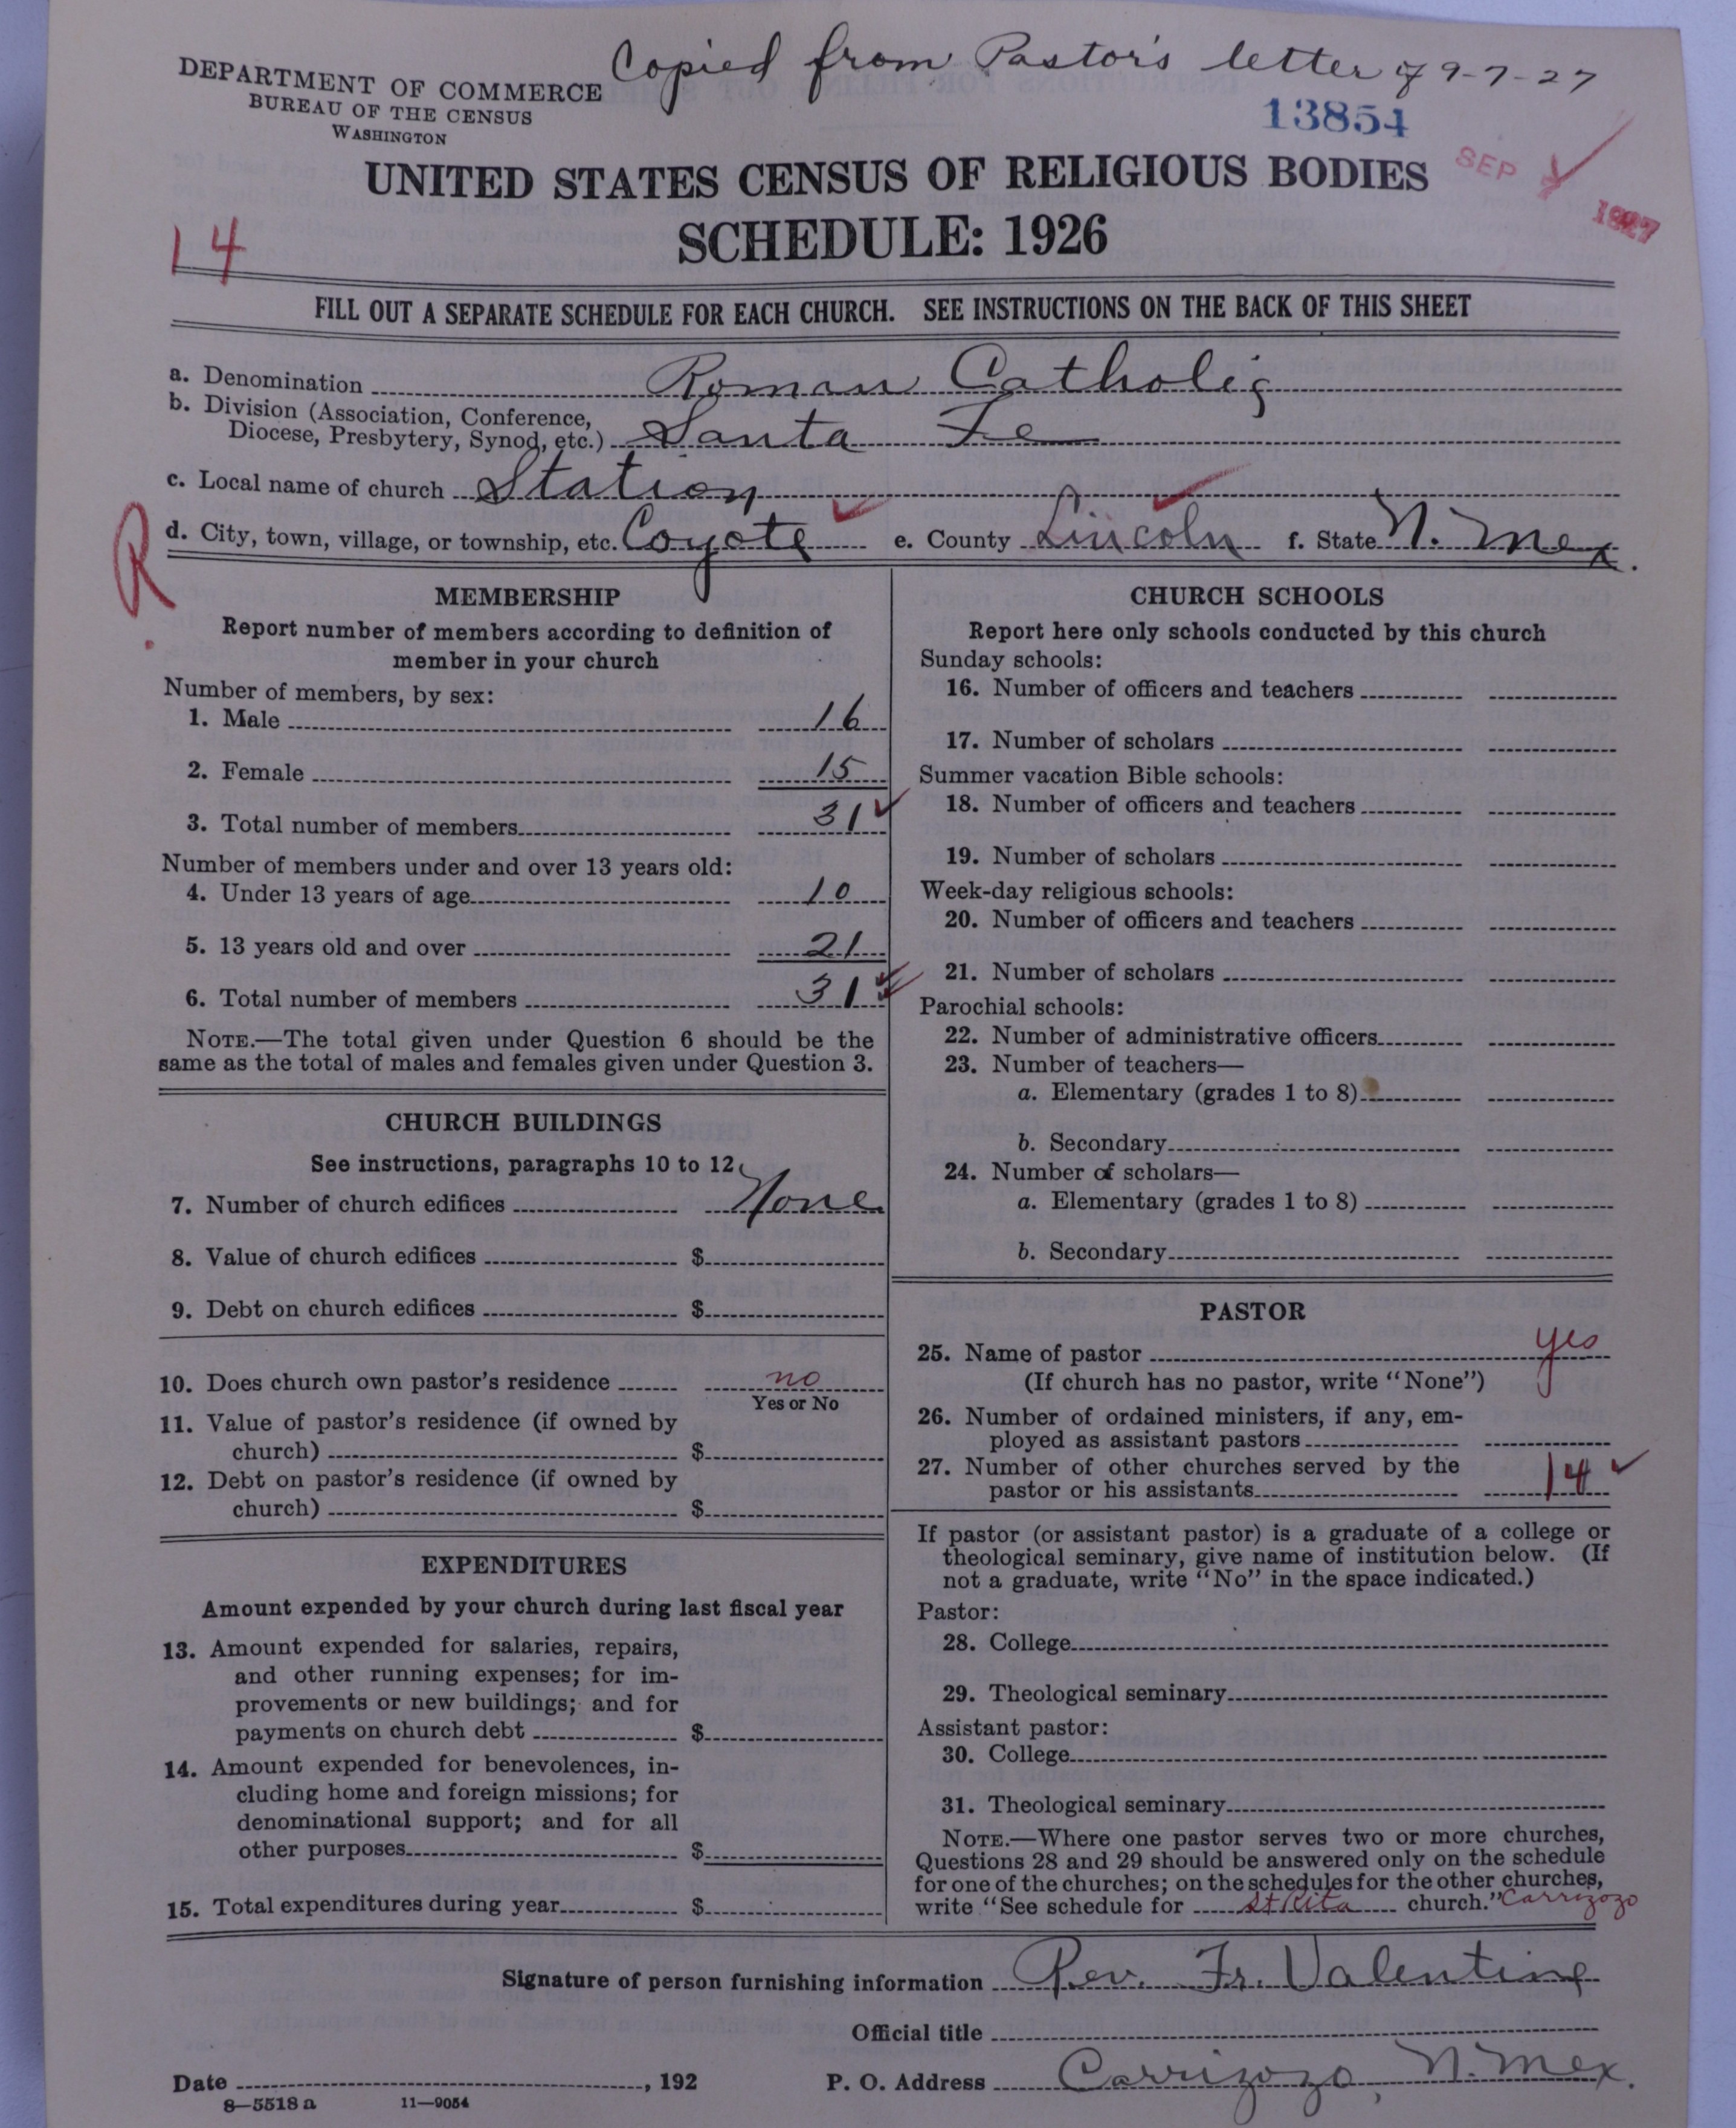 Copied from Pastor's letter of 9-7-27
DEPARTMENT OF COMMERCE
BUREAU OF THE CENSUS
WASHINGTON
13854
SEP 7 1927
UNITED STATES CENSUS OF RELIGIOUS BODIES
SCHEDULE: 1926
14
FILL OUT A SEPARATE SCHEDULE FOR EACH CHURCH. SEE INSTRUCTIONS ON THE BACK OF THIS SHEET
a. Denomination Roman Catholic
b. Division (Association, Conference,
Diocese, Presbytery, Synod, etc.) Santa Fe
c. Local name of church Station
d. City, town, village, or township, etc. Coyote e. County Lincoln f. State N. Mex.
R.
MEMBERSHIP
Report number of members according to definition of
member in your church
Number of members, by sex:
1. Male 16
2. Female 15
3. Total number of members 31
Number of members under and over 13 years old:
4. Under 13 years of age 10
5. 13 years old and over 21
6. Total number of members 31
NOTE.—The total given under Question 6 should be the
same as the total of males and females given under Question 3.
CHURCH BUILDINGS
See instructions, paragraphs 10 to 12
7. Number of church edifices None
8. Value of church edifices $
9. Debt on church edifices $
10. Does church own pastor's residence no
Yes or No
11. Value of pastor's residence (if owned by
church) $
12. Debt on pastor's residence (if owned by
church) $
EXPENDITURES
Amount expended by your church during last fiscal year
13. Amount expended for salaries, repairs,
and other running expenses; for im-
provements or new buildings; and for
payments on church debt $
14. Amount expended for benevolences, in-
cluding home and foreign missions; for
denominational support; and for all
other purposes $
15. Total expenditures during year $
CHURCH SCHOOLS
Report here only schools conducted by this church
Sunday schools:
16. Number of officers and teachers
17. Number of scholars
Summer vacation Bible schools:
18. Number of officers and teachers
19. Number of scholars
Week-day religious schools:
20. Number of officers and teachers
21. Number of scholars
Parochial schools:
22. Number of administrative officers
23. Number of teachers—
a. Elementary (grades 1 to 8)
b. Secondary
24. Number of scholars—
a. Elementary (grades 1 to 8)
b. Secondary
PASTOR
25. Name of pastor yes
(If church has no pastor, write "None")
26. Number of ordained ministers, if any, em-
ployed as assistant pastors
27. Number of other churches served by the
pastor or his assistants 14
If pastor (or assistant pastor) is a graduate of a college or
theological seminary, give name of institution below. (If
not a graduate, write "No" in the space indicated.)
Pastor:
28. College
29. Theological seminary
Assistant pastor:
30. College
31. Theological seminary
NOTE.—Where one pastor serves two or more churches,
Questions 28 and 29 should be answered only on the schedule
for one of the churches; on the schedules for the other churches,
write "See schedule for St Rita church." Carrizozo
Signature of person furnishing information Rev. Fr. Valentine
Official title
Date , 192 P. O. Address Carrizozo, N. Mex.
8—5518 a 11—9054